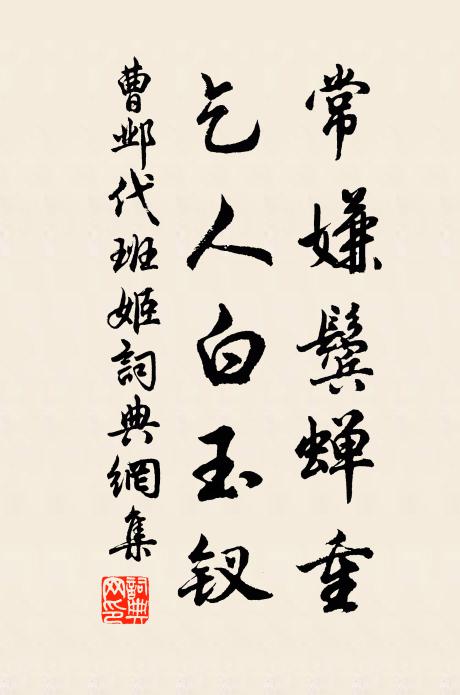 常嫌鬓蝉重
乞人白玉钗
曹邺代班姬詞典網集
詞典网印